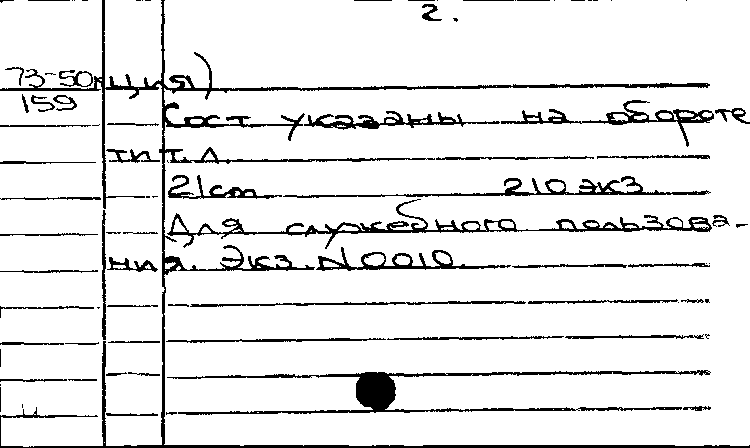 2.
73-50к ция)
159
Сост указаны на обороте
тит. л.
21cm 210 экз.
Для служебного пользова-
ния. Экз. N 0010.